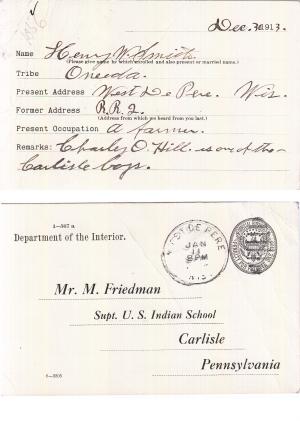 Dec. 30 1913.
Name Henry W. Smith
(Please give name by which enrolled and also present or married name.)
Tribe Oneida.
Present Address West De Pere. Wis.
Former Address R.R.2.
(Address from which we heard from you last.)
Present Occupation A farmer.
Remarks: Charley O. Hill. is one of the
Carlisle boys.
5—367 a
Department of the Interior.
WEST DE PERE
JAN
11
8PM
WIS.
Mr. M. Friedman
Supt. U. S. Indian School
Carlisle
Pennsylvania